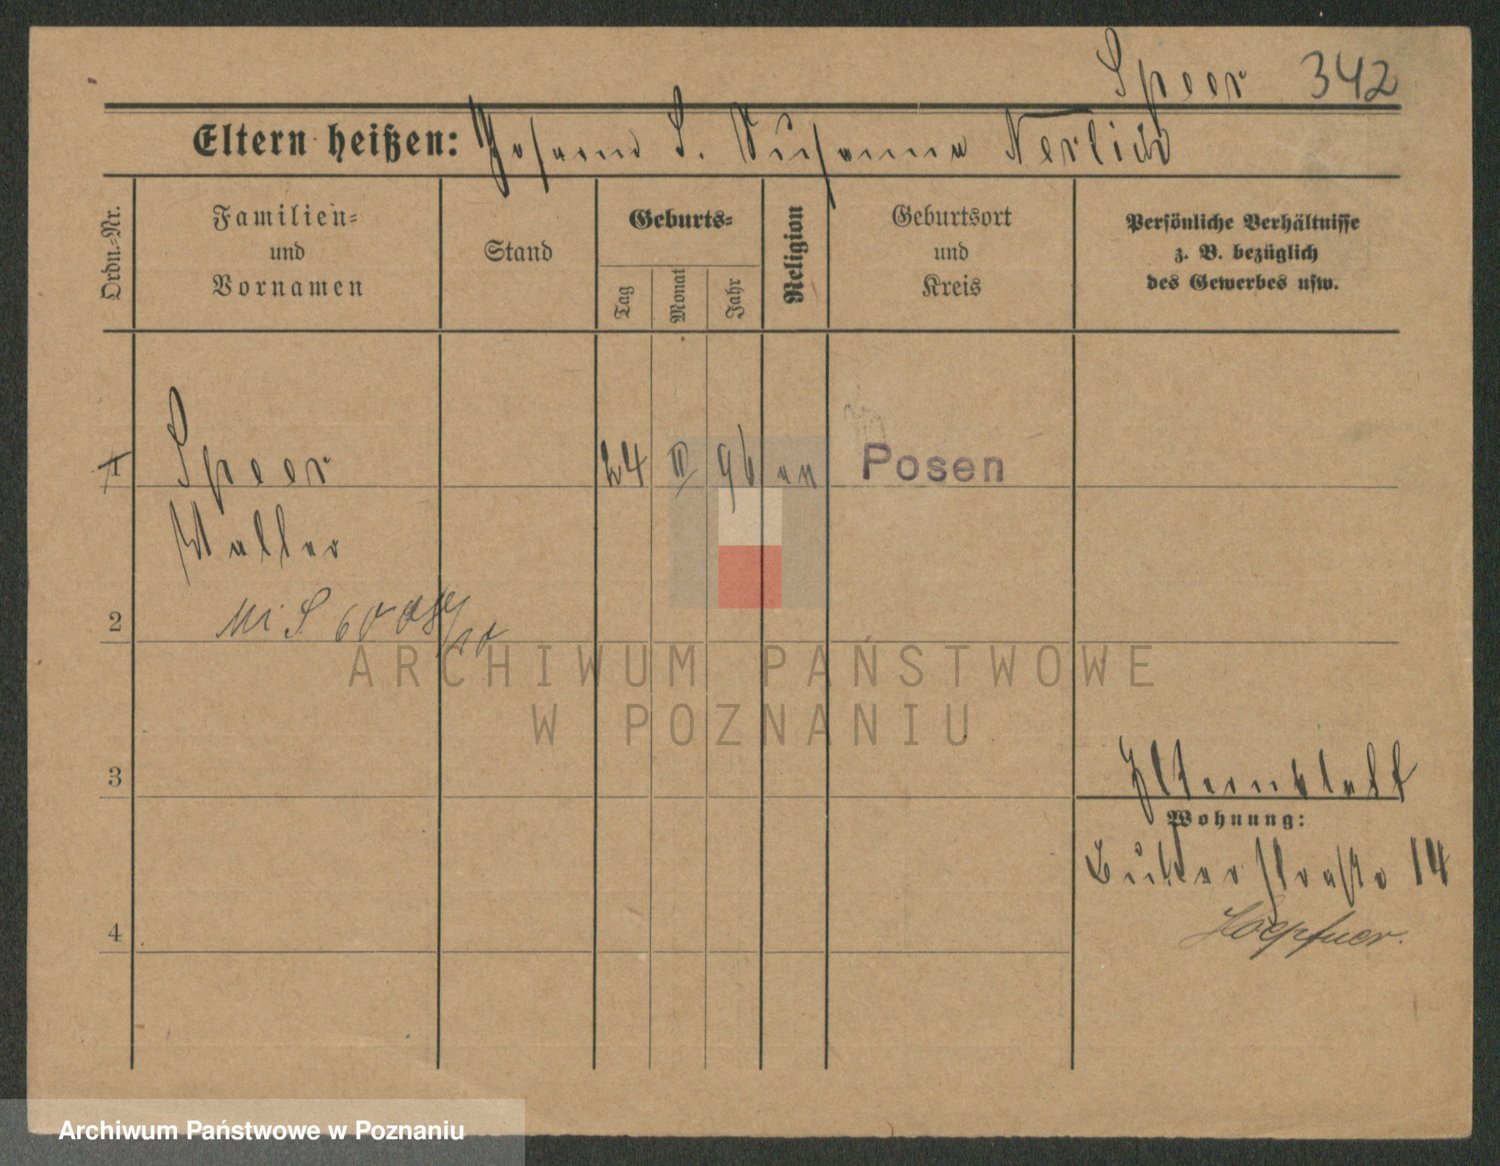 Speer 342
Eltern heißen: Johann S. Susanna Nerlich
Ordn.-Nr.
Familien-
und
Vornamen
Stand
Geburts-
Tag
Monat
Jahr
Religion
Geburtsort
und
Kreis
Persönliche Verhältnisse
z. B. bezüglich
des Gewerbes usw.
1 Speer 24 II 96 Posen
Walter
2
ARCHIWUM PAŃSTWOWE
W POZNANIU
3
Wohnung:
Buker Straße 14
Hoepfner.
4
Archiwum Państwowe w Poznaniu